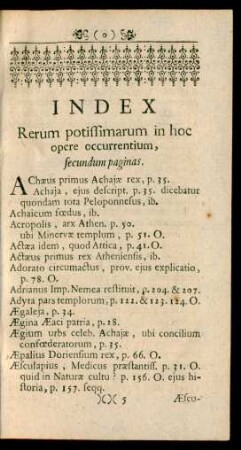 ( o )
INDEX
Rerum potissimarum in hoc
opere occurrentium,
secundum paginas.
AChæus primus Achajæ rex, p. 35.
Achaja, ejus descript. p. 35. dicebatur
quondam tota Peloponnesus, ib.
Achaicum fœdus, ib.
Acropolis, arx Athen. p. 50.
ubi Minervæ templum, p. 51. O.
Actæa idem, quod Attica, p. 41. O.
Actæus primus rex Atheniensis, ib.
Adorato circumactus, prov. ejus explicatio,
p. 78. O.
Adrianus Imp. Nemea restituit, p. 204. & 207.
Adyta pars templorum, p. 122. & 123. 124. O.
Ægaleja, p. 34.
Ægina Æaci patria, p. 28.
Ægium urbs celeb. Achajæ, ubi concilium
confœderatorum, p. 35.
Æpalius Doriensium rex, p. 66. O.
Æsculapius, Medicus præstantiss. p. 31. O.
quid in Naturæ cultu? p. 156. O. ejus hi-
storia, p. 157. seqq.
)()( 5 Æscu-